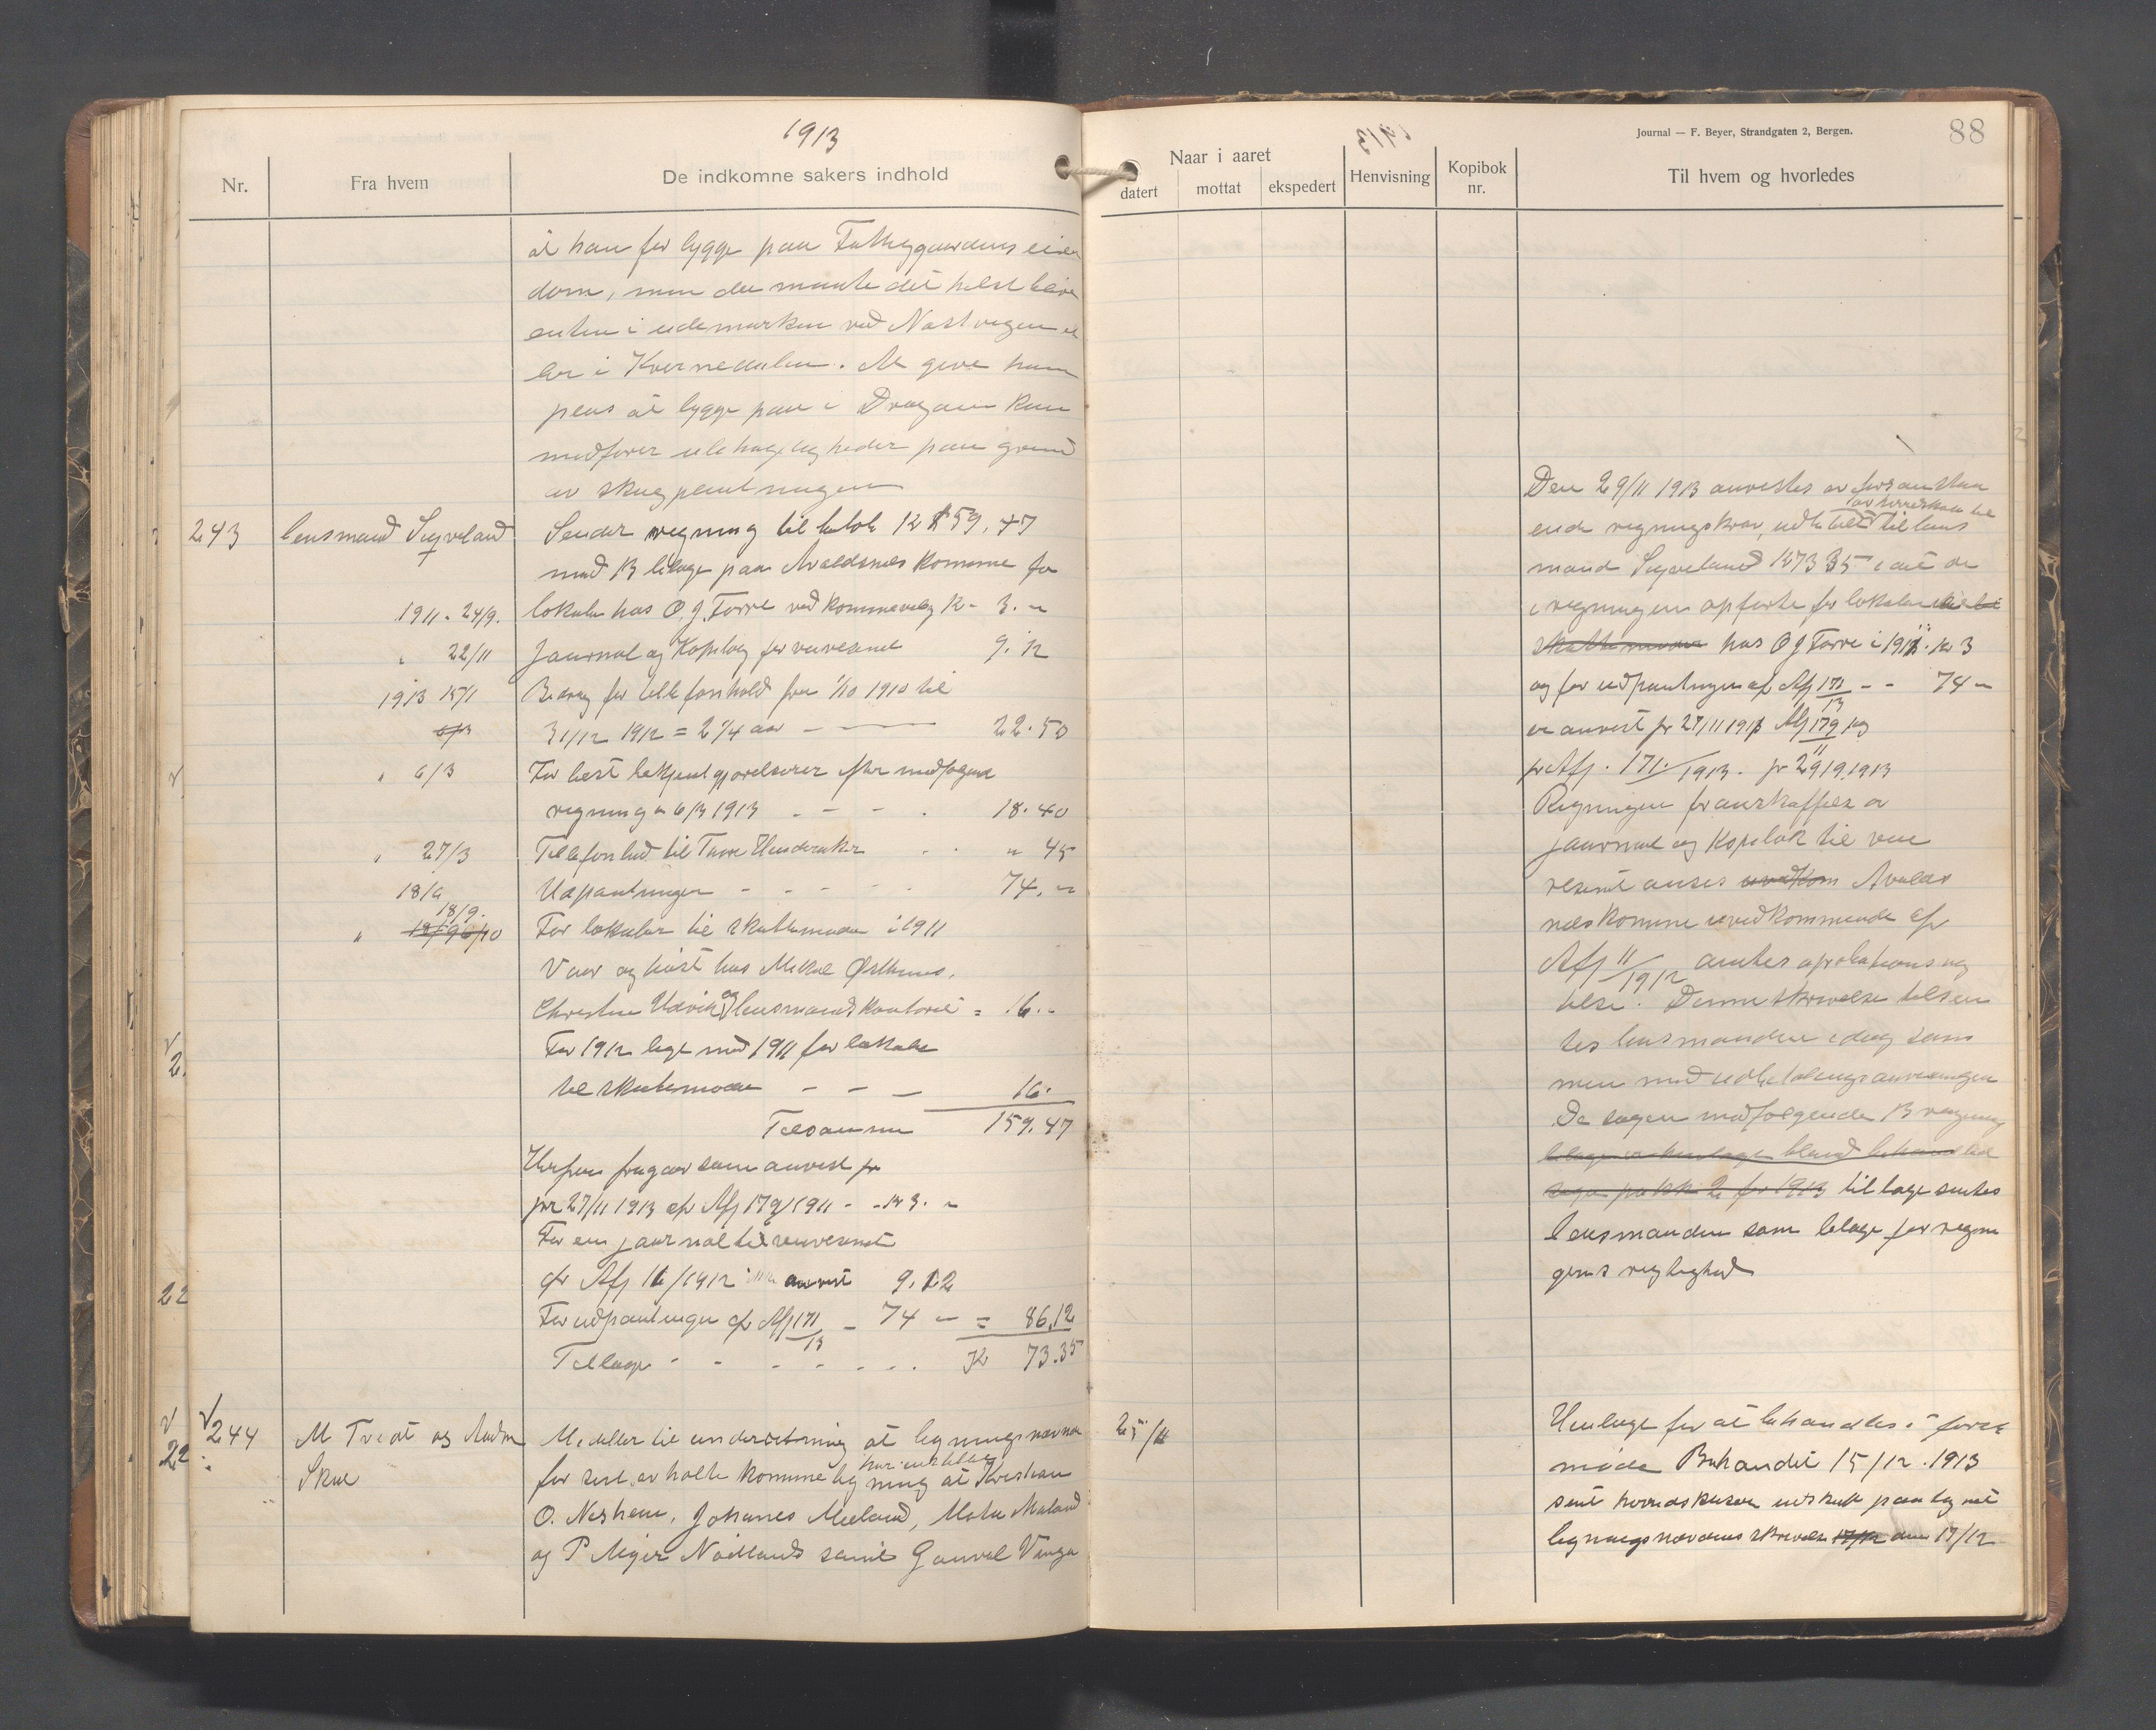 1913
Nr.
Fra hvem
De indkomne sakers indhold
at han for bygge paa Fattiggaardens eien
dom, men da maate det helst blive
enten i udemarken ved Nastvegen el
ler i Kvernedalen. At give ham
plas at bygge paa i Dragane kan
medfører ubehageligheder paa grund
av skogplantningen
243
Lensmand Sigveland
Sender regning til beløb kr 159.47
med 13 bilage paa Avaldsnes komune for
1911 - 24/9.
lokale hos O. J. Førre ved komunevalg K - 3. "
" 22/11
Journal og Kopibog for veivesenet 9.12
1913 15/1
Bidrag for telefonhold fra 1/10 1910 til
31/12 1912 = 2 1/4 aar - 22.50
" 6/3
For læst bekjentgjørelserer efter medfølgende
regning a 6/3 1913 - - - 18.40
" 27/3
Telefonbud til Tore Hinderaker - - " 45
18/9
Udpantninger - - - - 74. "
18/9.
"
For lokaler til skattemøder i 1911
Vaar og høst hos Mikal Østhus,
Christine Udvik og lensmandskontoret = 16. -
For 1912 lige med 1911 for lokale
til skatemøder - - - 16.
Tilsammen 159.47
Herfra fragaar som anvist pr
pr 27/11 1913 cfr Afj 179/1911 - - kr 3. "
For en jaurnal til veivesenet
cfr Afj 11/1912 anvist 9.12
For udpantninger cfr Afj 171/13 - 74 " = 86.12
Tilbage - - - - - Kr 73.35
244
M Tveit og Andr
Skaar
Meddeler til underretning at ligningsnævnden
har indstillet
for Avaldsnes komune ligning at Kristian
O. Neshem, Johannes Meeland, Mæland
og P Meyer Nordlands samt Gunval Vaaga
Journal — F. Beyer, Strandgaten 2, Bergen.
88
Naar i aaret
datert
mottat
ekspedert
Henvisning
Kopibok nr.
Til hvem og hvorledes
Den 29/11 1913 anvistes av foranstaa
av herredskassen
ende regningskrav, udbetalt til lens
mand Sigveland kr 73 35 i det de
i regningen opførte for lokaler
skattemøder hos O J Førre i 1911. kr 3
og for udpantninger cfr Afj 171/13 - - 74 "
er anvist pr 27/11 1913 Afj 179 og
pr Afj. 171/1913. pr 29/9.1913
Regningen for anskaffelse av
jaurnal og Kopibok til vei
vesenet anses uvedkom Avalds
nes komune uvedkommende cfr
Afj 11/1912 amtets aprobationsneg
telse. Denne skrivelse tilsen
tes lensmanden idag sam
men med udbetalingsanvisningen
De sagen medfølgende 13 regning
bilage er henlagt bland behandlede
sager pakke 2 for 1913 tilbage sendes
lensmanden som bilage for regnin
gens rigtighed
25/11
Henlæge for at behandles i føre
møde Behandlet 15/12.1913
sent herredskassen udskrift paategnet
ligningsnævdens skrivelse 17/12 den 17/12